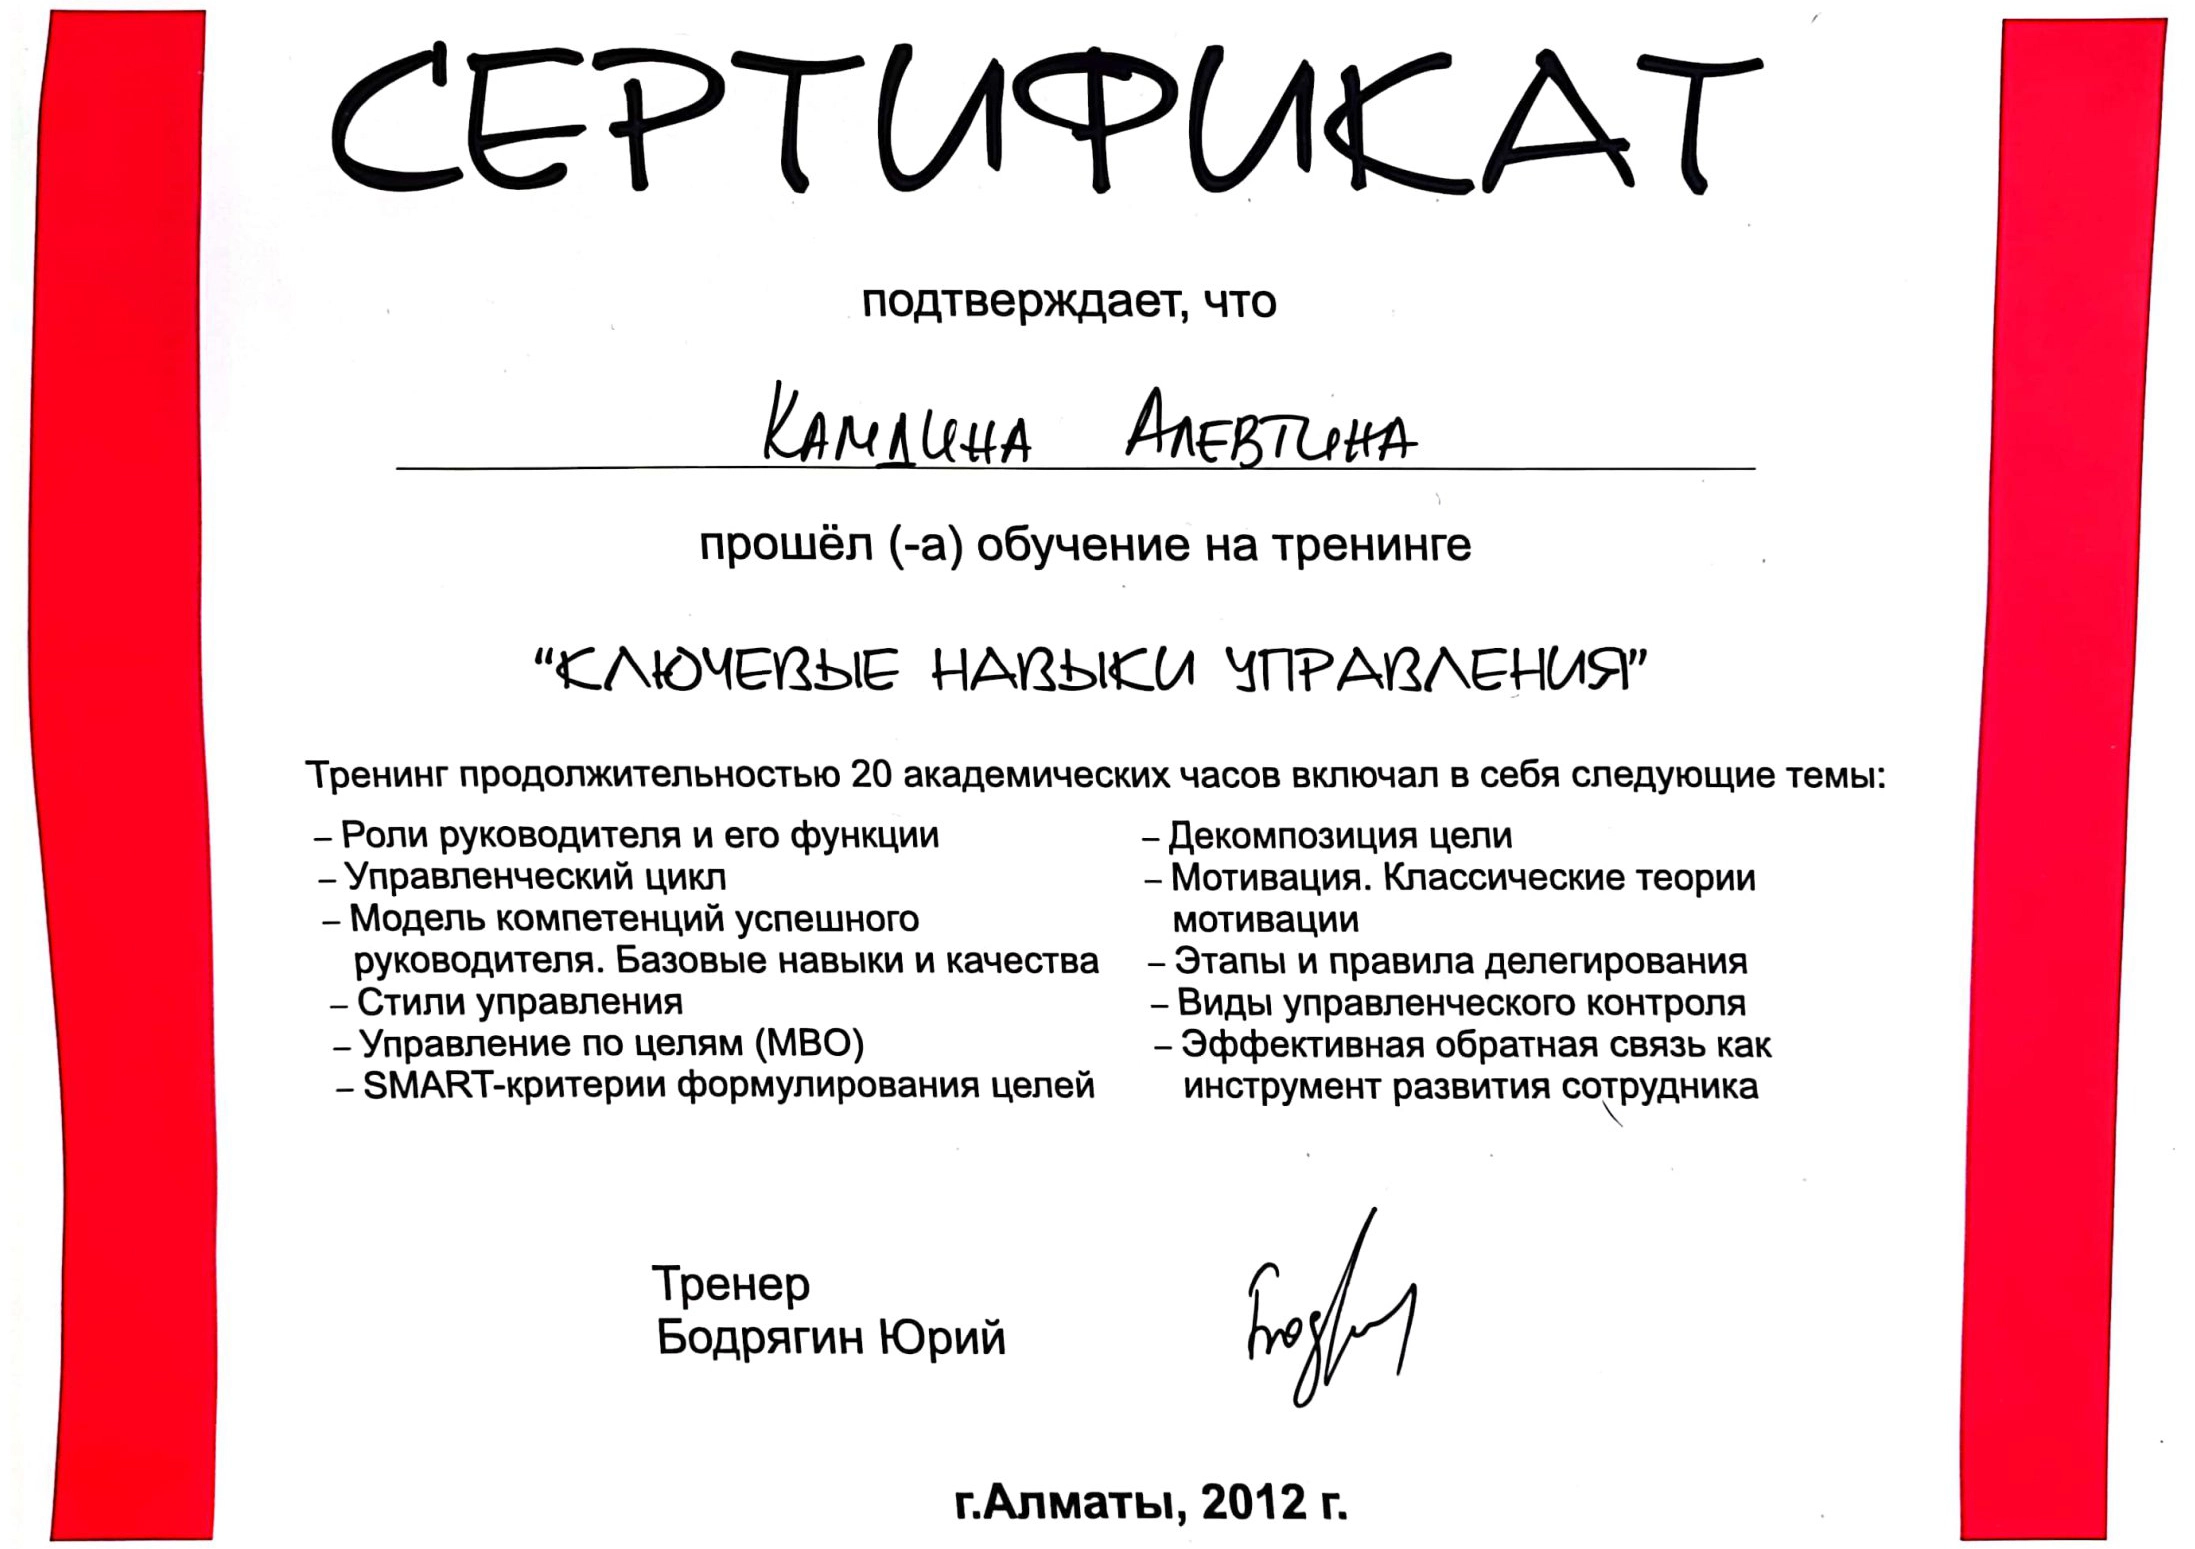 СЕРТИФИКАТ
подтверждает, что
КАМДИНА АЛЕВТИНА
прошёл (-а) обучение на тренинге
“КЛЮЧЕВЫЕ НАВЫКИ УПРАВЛЕНИЯ”
Тренинг продолжительностью 20 академических часов включал в себя следующие темы:
– Роли руководителя и его функции
– Управленческий цикл
– Модель компетенций успешного
руководителя. Базовые навыки и качества
– Стили управления
– Управление по целям (МВО)
– SMART-критерии формулирования целей
– Декомпозиция цели
– Мотивация. Классические теории
мотивации
– Этапы и правила делегирования
– Виды управленческого контроля
– Эффективная обратная связь как
инструмент развития сотрудника
Тренер
Бодрягин Юрий
г.Алматы, 2012 г.